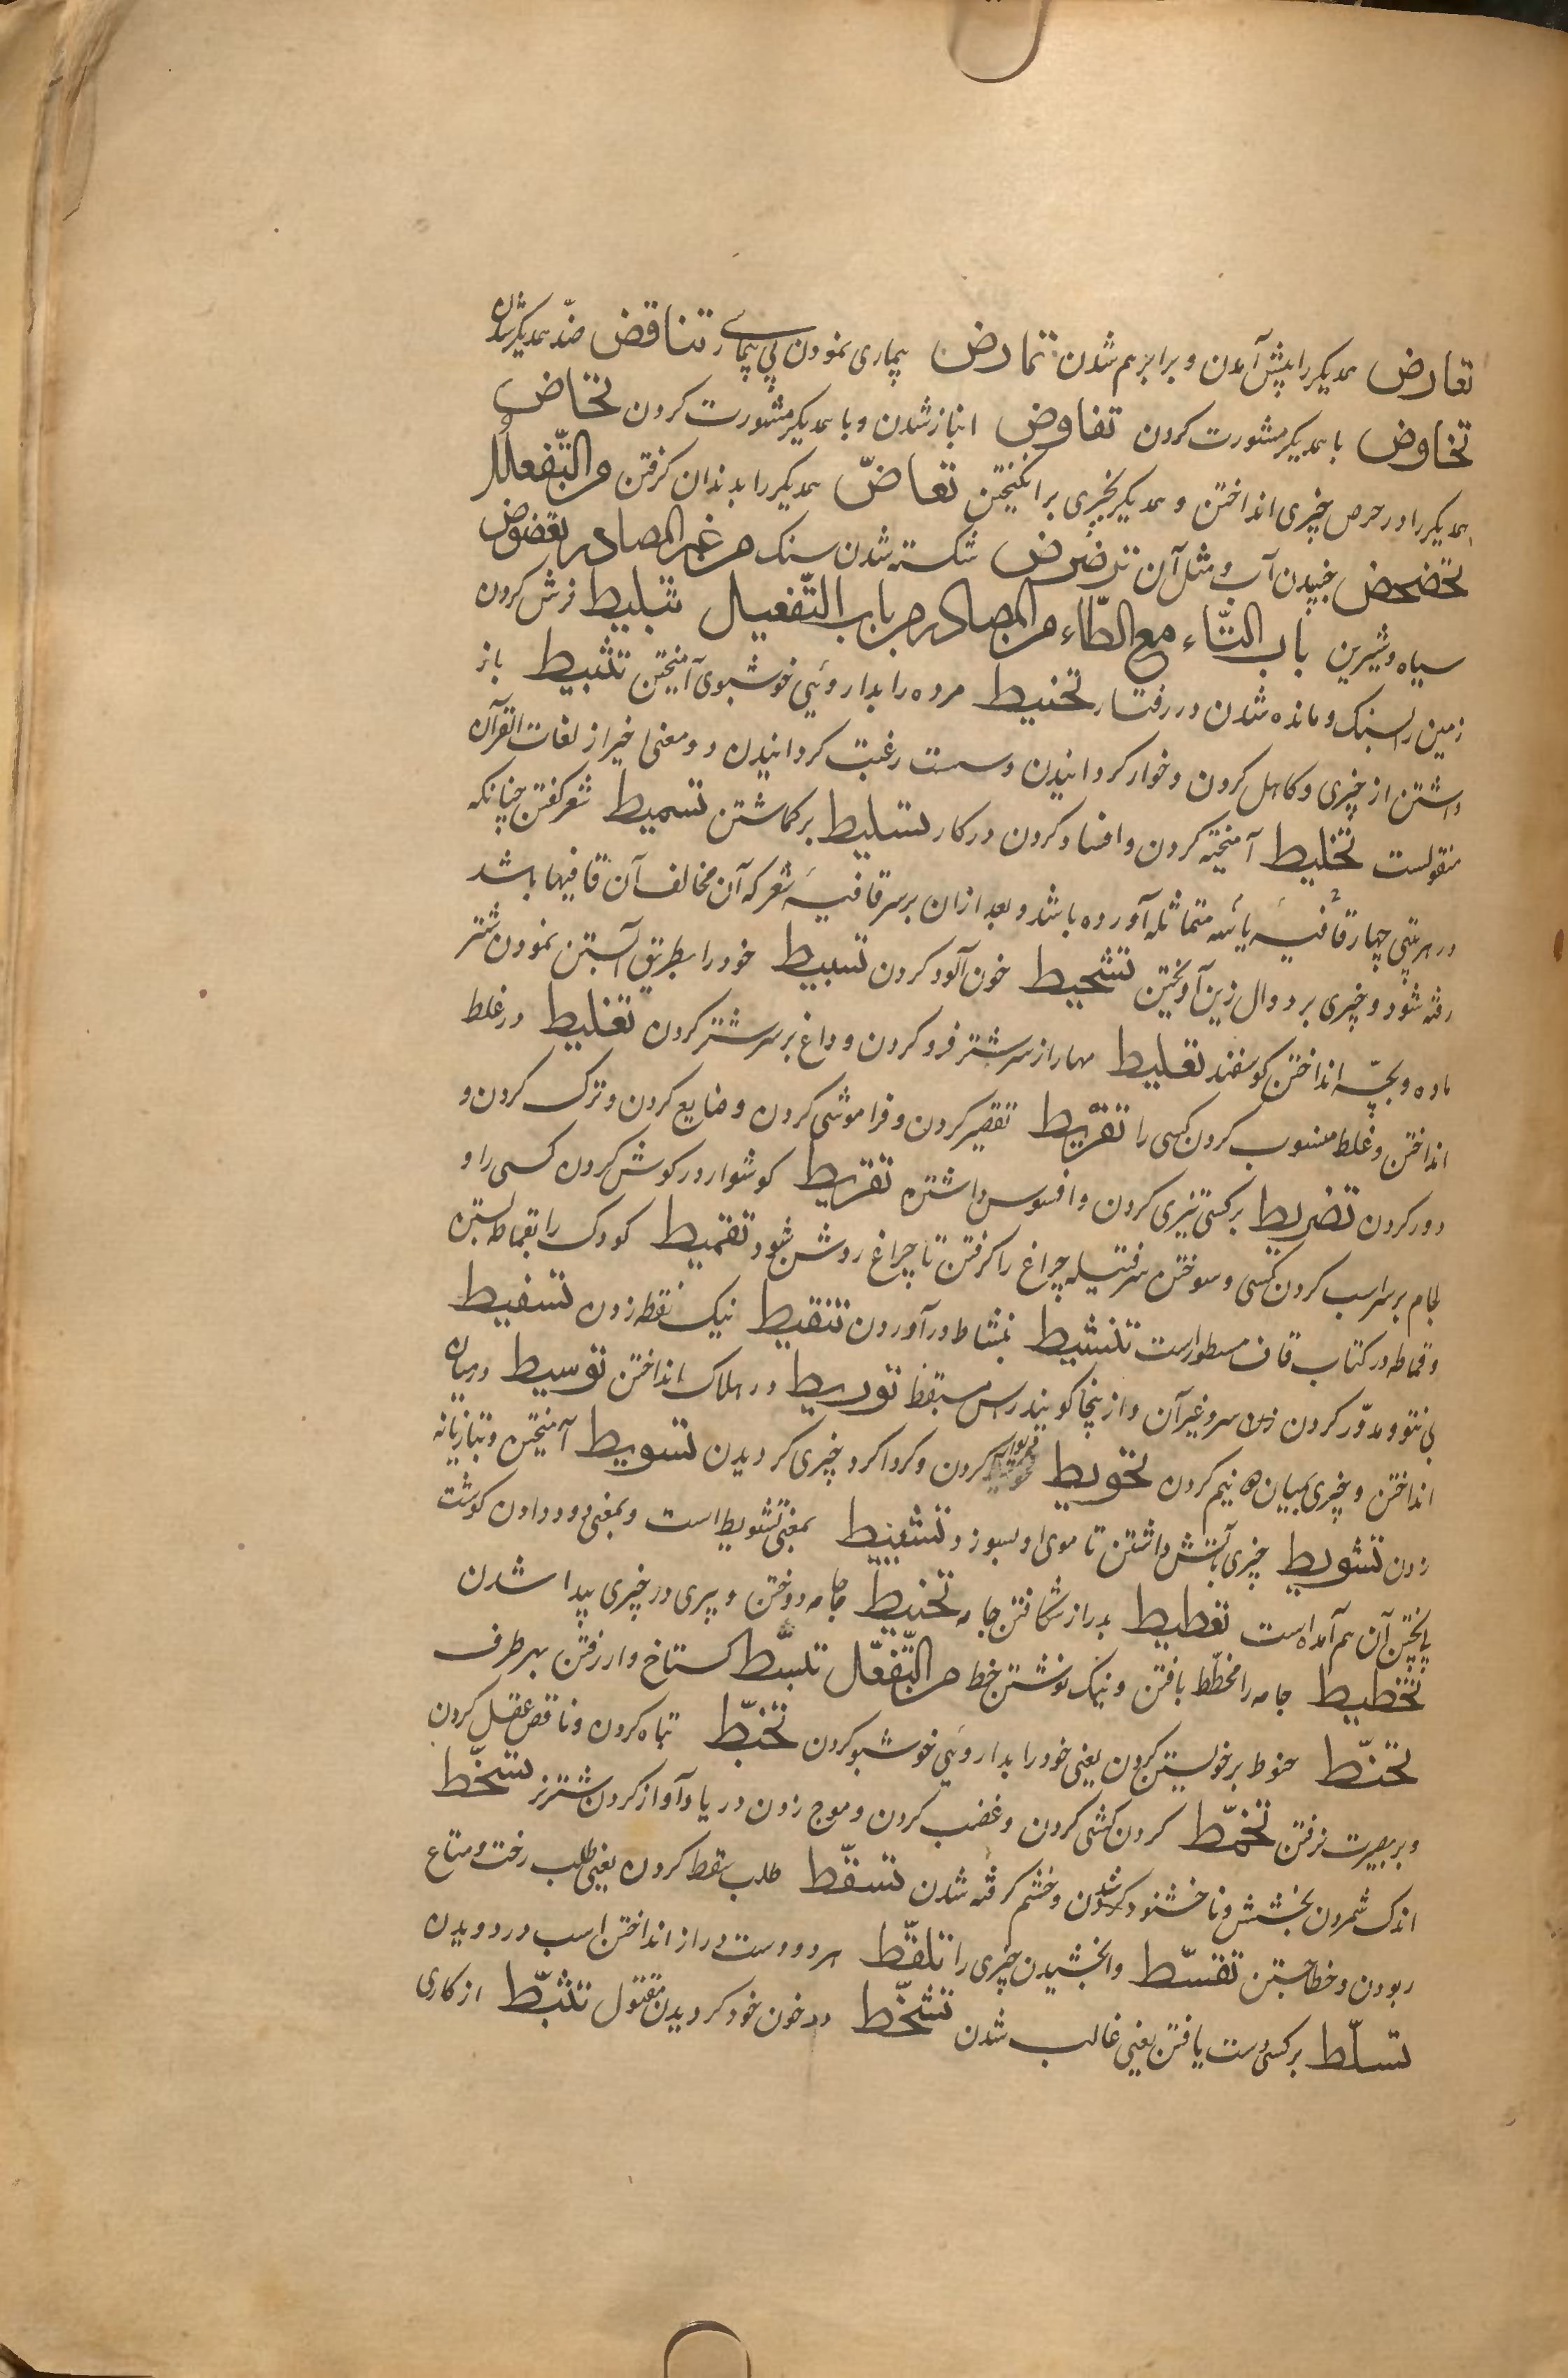 تعارض همدیکر را پیش آمدن و برابر هم شدن تمارض بیماری نمودن بی بیماری تناقض ضدّ همدیکر شدن
تخاوض با همدیکر مشورت کردن تفاوض انباز شدن و با همدیکر مشورت کردن تحاض
همدیکر را در حرص چیزی انداختن و همدیکر بچیزی برانکیختن تعاضّ همدیکر را بدندان کرفتن من التّفعلل
تخضحض جنبیدن آب و مثل آن ترضرض شکسته شدن سنک من غیر المصادر تعضوض
سیاه و شیرین باب التّاء مع الطّاء من المصادر من باب التّفعیل تبلیط فرش کردن
زمین را بسنک و مانده شدن در رفتار تحنیط مرده را بداروئی خوشبوی آمیختن تثبیط باز
داشتن از چیزی و کاهل کردن و خوار کردانیدن و سست رغبت کردانیدن و دو معنی اخیر از لغات القرآن
منقولست تخلیط آمیخته کردن و افساد کردن در کار تسلیط برکماشتن تسمیط شعر کفتن چنانکه
در هر بیتی چهار قافیه یا سه متماثله آورده باشد و بعد ازان بر سر قافیهٔ شعر که آن مخالف آن قافیها باشد
رفته شود و چیزی بر دوال زین آویختن تشحیط خون آلود کردن تسبیط خود را بطریق آبستن نمودن شتر
ماده و بچّه انداختن کوسفند تعلیط مهار از سر شتر فرو کردن و داغ بر سر شتر کردن تغلیط در غلط
انداختن و غلط منسوب کردن کسی را تفریط تقصیر کردن و فراموشی کردن و ضایع کردن و ترک کردن و
دور کردن تضریط بر کسی تیزی کردن و افسوس داشتن تقریط کوشوار در کوش کردن کسی را و
لجام بر سر اسب کردن کسی و سوختن سر فتیله چراغ را کرفتن تا چراغ روشن شود تقمیط کودک را بقماط بستن
و قماط در کتاب قاف مسطور است تنشیط بنشاط درآوردن تنقیط نیک نقطه زدن تسفیط
بی نتو و مدوّر کردن سر و غیر آن و ازینجا کویند راس مسقط توریط در هلاک انداختن توسیط در میان
انداختن و چیزی بمیان دو نیم کردن تحویط دیوار کردن و کرداکرد چیزی کردیدن تسویط آمیختن و بتازیانه
زدن تشویط چیزی بآتش داشتن تا موی او بسوزد تشییط بمعنی تشویط است و بمعنی دود دادن کوشت
یا پختن آن هم آمده است تعطیط بدراز شکافتن جامه تخییط جامه دوختن و پیری در چیزی پیدا شدن
تخطیط جامه را مخطّط بافتن و نیک نوشتن خط من التّفعّل تبسّط کستاخ وار رفتن بهر طرف
تحنّط حنوط بر خویشتن کردن یعنی خود را بداروئی خوشبو کردن تخبّط تباه کردن و ناقص عقل کردن
و بر بصیرت نرفتن تخمّط کردن کشی کردن و غضب کردن و موج زدن دریا و آواز کردن شتر نر تسخّط
اندک شمردن بخشش و ناخشنود شدن و خشم کرفته شدن تسقّط طلب سقط کردن یعنی طلب رخت و متاع
ربودن و خطا جستن تقسّط وابخشیدن چیزی را تلقّط هر دو دست دراز انداختن اسب در دویدن
تسلّط بر کسی دست یافتن یعنی غالب شدن تشحّط در خون خود کردیدن مقتول تثبّط از کاری